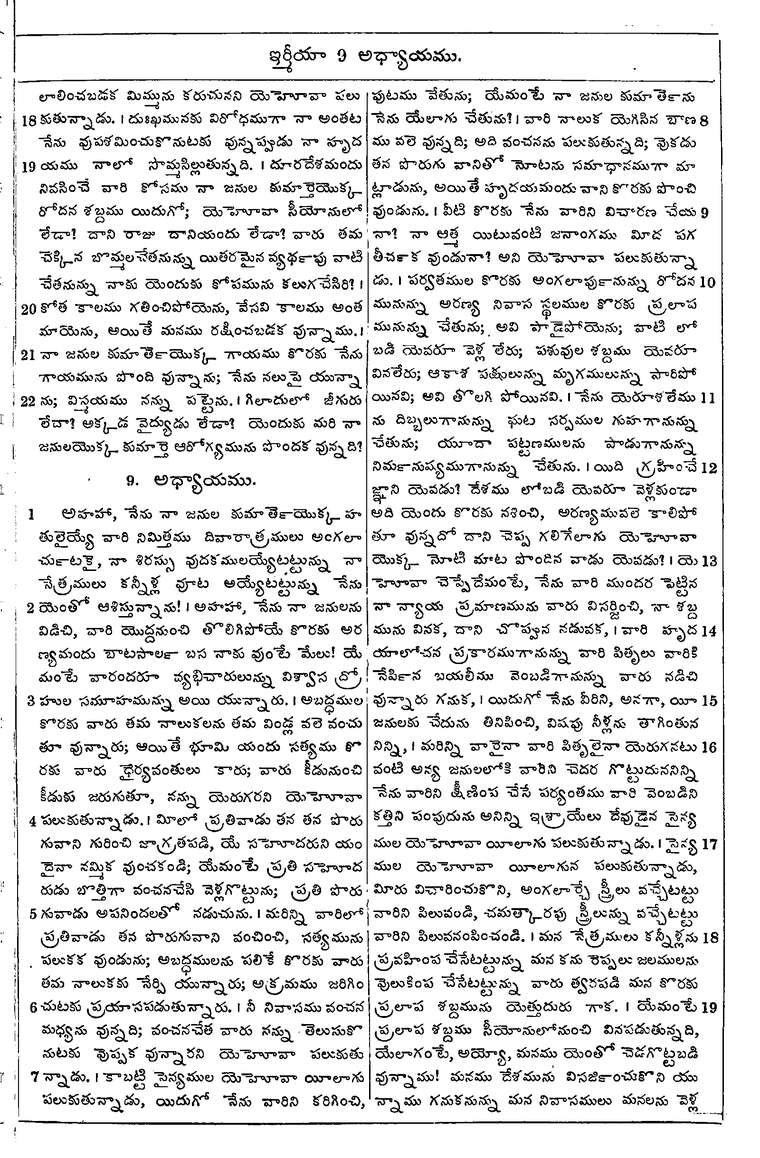 ఇర్మీయా 9 అధ్యాయము.
లాలించబడక మిమ్మును కరుచునని యెహోవా పలు
18 కుతున్నాడు. । దుఃఖమునకు విరోధముగా నా అంతట
నేను వుపశమించుకొనుటకు వున్నప్పడు నా హృద
19 యము నాలో సొమ్మసిల్లుతున్నది. । దూరదేశమందు
నివసించే వారి కోసము నా జనుల కుమార్తెయొక్క
రోదన శబ్దము యిదుగో; యెహోవా సీయోనులో
లేడా? దాని రాజు దానియందు లేడా? వారు తమ
చెక్కిన బొమ్మలచేతనున్ను యితరమైన వ్యథ౯పు వాటి
చేతనున్ను నాకు యెందుకు కోపమును కలుగచేసిరి? ।
20 కోత కాలము గతించిపోయెను, వేసవి కాలము అంత
మాయెను, అయితే మనము రక్షించబడక వున్నాము. ।
21 నా జనుల కుమాతె౯యొక్క గాయము కొరకు నేను
గాయమును పొంది వున్నాను; నేను నలుపై యున్నా
22 ను; విస్మయము నన్ను పట్టెను. । గిలాదులో జీగురు
లేదా? అక్కడ వైద్యుడు లేడా? యెందుకు మరి నా
జనులయొక్క కుమార్తె ఆరోగ్యమును పొందక వున్నది?
9. అధ్యాయము.
1 అహహా, నేను నా జనుల కుమాతె౯యొక్క హ
తులైయ్యే వారి నిమిత్తము దివారాత్రములు అంగలా
చు౯టకై, నా శిరస్సు వుదకములయ్యేటట్టున్ను నా
నేత్రములు కన్నీళ్ల వూట అయ్యేటట్టున్ను నేను
2 యెంతో ఆశిస్తున్నాను! । అహహా, నేను నా జనులను
విడిచి, వారి యొద్దనుంచి తొలిగిపోయే కొరకు అర
ణ్యమందు బాటసాల౯ బస నాకు వుంటే మేలు! యే
మంటే వారందరూ వ్యభిచారులున్ను విశ్వాస ద్రో
3 హుల సమూహమున్ను అయి యున్నారు. । అబద్ధముల
కొరకు వారు తమ నాలుకలను తమ విండ్ల వలె వంచు
తూ వున్నారు; అయితే భూమి యందు సత్యము కొ
రకు వారు ధైర్యవంతులు కారు; వారు కీడునుంచి
కీడుకు జరుగుతూ, నన్ను యెరుగరని యెహోవా
4 పలుకుతున్నాడు. । మీలో ప్రతివాడు తన తన పొరు
గువాని గురించి జాగ్రతపడి, యే సహోదరుని యం
దైనా నమ్మిక వుంచకండి; యేమంటే ప్రతి సహోద
రుడు బొత్తిగా వంచనచేసి వెళ్లగొట్టును; ప్రతి పొరు
5 గువాడు అపనిందలతో నడుచును. । మరిన్ని వారిలో
ప్రతివాడు తన పొరుగువాని వంచించి, సత్యమును
పలుకక వుండును; అబద్ధములను పలికే కొరకు వారు
తమ నాలుకకు నేర్పి యున్నారు; అక్రమము జరిగిం
6 చుటకు ప్రయాసపడుతున్నారు. । నీ నివాసము వంచన
మధ్యను వున్నది; వంచనచేత వారు నన్ను తెలుసుకొ
నుటకు వొప్పక వున్నారని యెహోవా పలుకుతు
7 న్నాడు. । కాబట్టి సైన్యముల యెహోవా యీలాగు
పలుకుతున్నాడు, యిదుగో నేను వారిని కరిగించి,
పుటము వేతును; యేమంటే నా జనుల కుమాతె౯ను
నేను యేలాగు చేతును? । వారి నాలుక యెగిసిన బాణ 8
ము వలె వున్నది; అది వంచనను పలుకుతున్నది; వొకడు
తన పొరుగు వానితో నోటను సమాధానముగా మా
ట్లాడును, అయితే హృదయమందు వాని కొరకు పొంచి
వుండును. । వీటి కొరకు నేను వారిని విచారణ చేయ 9
నా? నా ఆత్మ యిటువంటి జనాంగము మీద పగ
తీచ౯క వుండునా? అని యెహోవా పలుకుతున్నా
డు. । పర్వతముల కొరకు అంగలాపు౯నున్ను రోదన 10
మునున్ను అరణ్య నివాస స్థలముల కొరకు ప్రలాప
మునున్ను చేతును; అవి పాడైపోయెను; వాటి లో
బడి యెవరూ వెళ్ల లేరు; పశువుల శబ్దము యెవరూ
వినలేరు; ఆకాశ పక్షులున్ను మృగములున్ను పారిపో
యినవి; అవి తొలగి పోయినవి. । నేను యెరూశలేము 11
ను దిబ్బలుగానున్ను ఘట సర్పముల గుహగానున్ను
చేతును; యూదా పట్టణములను పాడుగానున్ను
నిమ౯నుష్యముగానున్ను చేతును. । యిది గ్రహించే 12
జ్ఞాని యెవడు? దేశము లోబడి యెవరూ వెళ్లకుండా
అది యెందు కొరకు నశించి, అరణ్యమువలె కాలిపో
తూ వున్నదో దాని చెప్ప గలిగేలాగు యెహోవా
యొక్క నోటి మాట పొందిన వాడు యెవడు? । యె 13
హోవా చెప్పేదేమంటే, నేను వారి ముందర పెట్టిన
నా న్యాయ ప్రమాణమును వారు విసర్జించి, నా శబ్ద
మును వినక, దాని చొప్పున నడువక, । వారి హృద 14
యాలోచన ప్రకారముగానున్ను వారి పితృలు వారికి
నేపి౯న బయలీము వెంబడిగానున్ను వారు నడిచి
వున్నారు గనుక, । యిదుగో నేను వీరిని, అనగా, యీ 15
జనులకు చేదును తినిపించి, విషపు నీళ్లను తాగింతున
నిన్ని, । మరిన్ని వారైనా వారి పితృలైనా యెరుగనటు 16
వంటి అన్య జనులలోకి వారిని చెదర గొట్టుదుననిన్ని
నేను వారిని క్షీణింప చేసే పర్యంతము వారి వెంబడిని
కత్తిని పంపుదును అనిన్ని ఇశ్రాయేలు దేవుడైన సైన్య
ముల యెహోవా యీలాగు పలుకుతున్నాడు. । సైన్య 17
ముల యెహోవా యీలాగున పలుకుతున్నాడు,
మీరు విచారించుకొని, అంగలార్చే స్త్రీలు వచ్చేటట్టు
వారిని పిలువండి, చమత్కారపు స్త్రీలున్ను వచ్చేటట్టు
వారిని పిలువనంపించండి. । మన నేత్రములు కన్నీళ్లను 18
ప్రవహింప చేసేటట్టున్ను మన కను రెప్పలు జలములను
వులుకింప చేసేటట్టున్ను వారు త్వరపడి మన కొరకు
ప్రలాప శబ్దమును యెత్తుదురు గాక. । యేమంటే 19
ప్రలాప శబ్దము సీయోనులోనుంచి వినపడుతున్నది,
యేలాగంటే, అయ్యో, మనము యెంతో చెడగొట్టబడి
వున్నాము! మనము దేశమును విసజి౯ంచుకొని యు
న్నాము గనుకనున్ను మన నివాసములు మనలను వెళ్ల